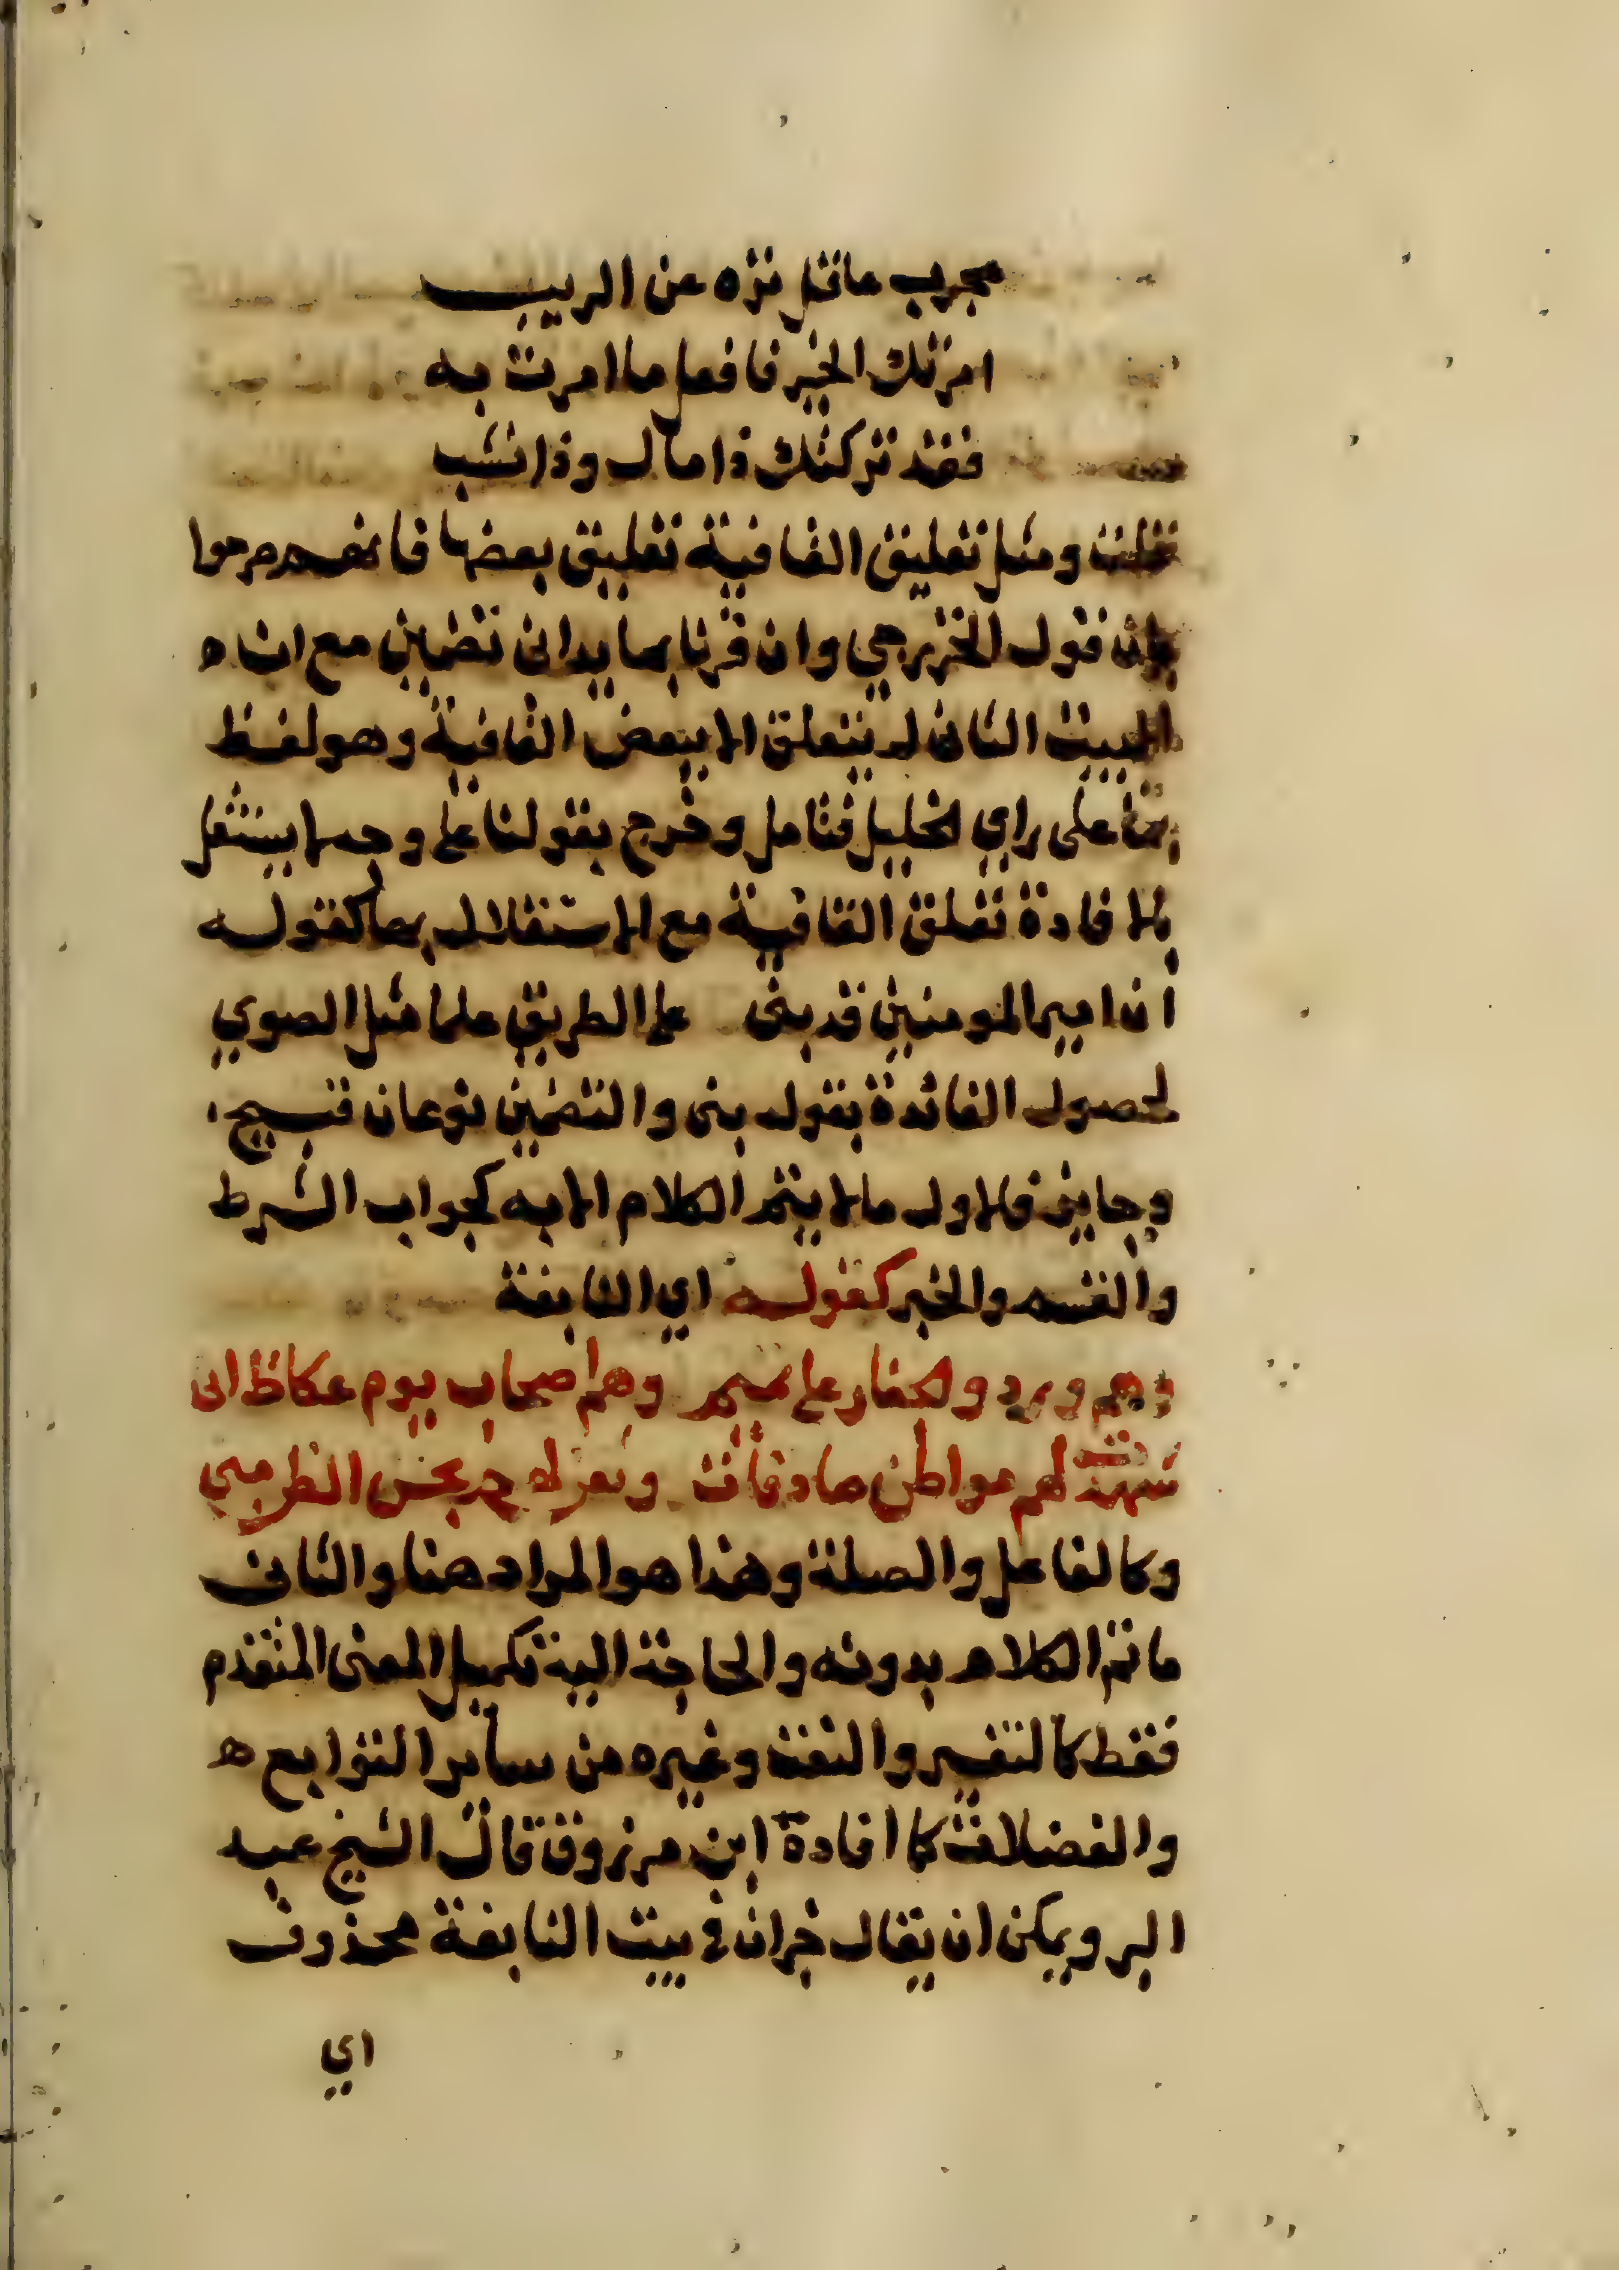 مجرب عاقل نزه عن الريب
امرتك الخير فافعل ما امرت به
فقد تركتك ذا مال وذا نشب
قلت ومثل تعليق القافية تعليق بعضها فانهم صرحوا
بان قول الخزرجي وان قرنا بما يداني تضمين مع ان ه
البيت الثاني لم يتعلق الا ببعض القافية وهو لفظ
بما على راي الخليل فتامل وخرج بقولنا على وجه لا يستقل
بالافادة تعلق القافية مع الاستقلال بها كقوله
ان امير المومنين قد بنى على الطريق علما مثل الصوي
لحصول الفائدة بقوله بنى والتضمين نوعان قبيح
وجايز فالاول ما لا يتم الكلام الا به كجواب الشرط
والقسم والخبر كقوله اي النابغة
وهم وردوا الجفار على تميم وهم اصحاب يوم عكاظ انى
شهدت لهم مواطن صادقات
وكالفاعل والصلة وهذا هو المراد هنا والثانى
ما تم الكلام بدونه والحاجة الية تكميل المعنى المتقدم
فقط كالتفسير والنعت وغيره من ساير التوابع ه
والفضلات كما افادة ابن مرزوق قال الشيخ عبد
البر ويمكن ان يقال خبر ان في بيت النابغة محذوف
اي